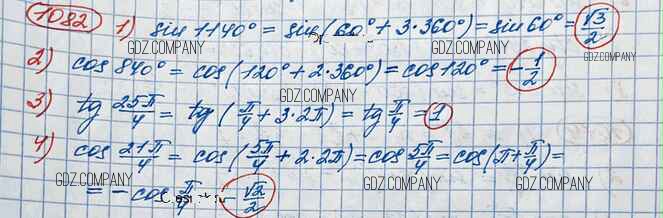 1082 1) sin 1140° = sin (60° + 3·360°) = sin 60° = √3/2
GDZ.COMPANY GDZ.COMPANY
2) cos 840° = cos (120° + 2·360°) = cos 120° = -1/2
GDZ.COMPANY
3) tg 25π/4 = tg (π/4 + 3·2π) = tg π/4 = 1
GDZ.COMPANY GDZ.COMPANY
4) cos 21π/4 = cos (5π/4 + 2·2π) = cos 5π/4 = cos (π + π/4) =
GDZ.COMPANY GDZ.COMPANY GDZ.COMPANY
= - cos π/4 = -√2/2